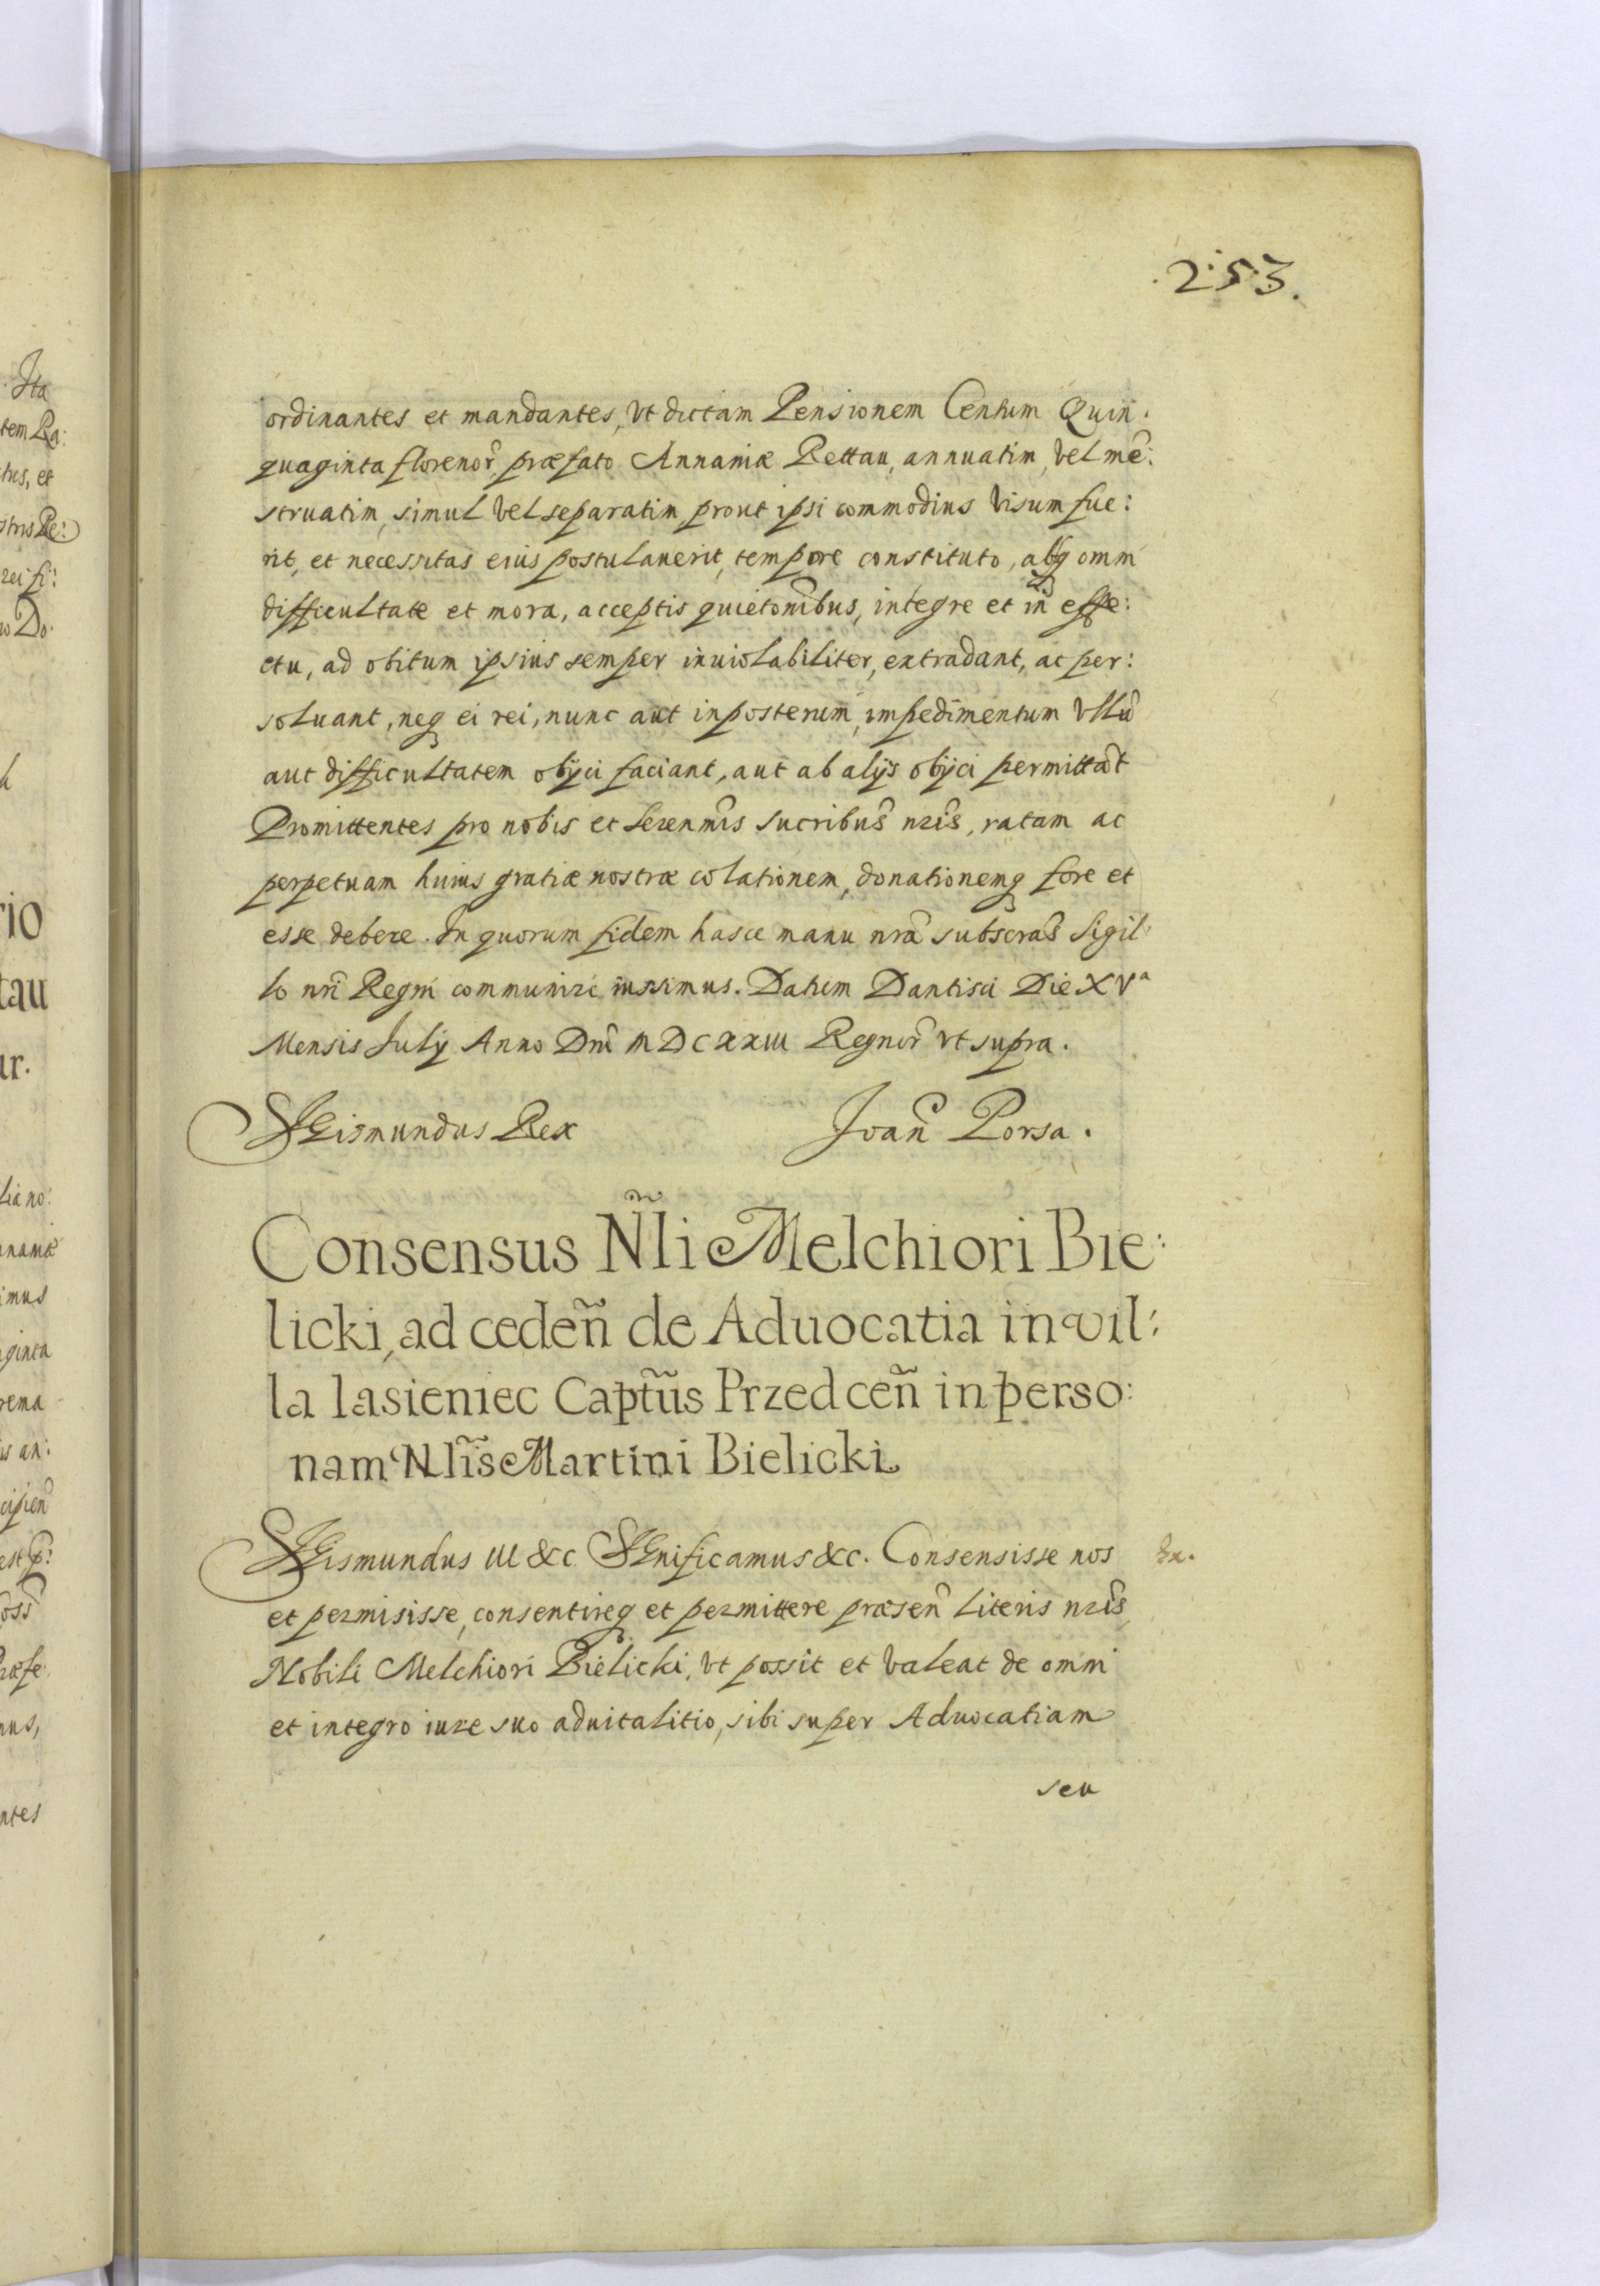 .2.5.3.
ordinantes et mandantes, vt dictam Pensionem Centum Quin:
quaginta florenor̃, præfato Annaniæ Rettau, annuatim, vel mẽ:
struatim, simul vel separatim prout ipsi commodius visum fue:
rit, et necessitas eius postulauerit, tempore constituto, absq omni
difficultate et mora, acceptis quietoñibus, integre et in effe:
ctu, ad obitum ipsius semper inuiolabiliter, extradant, ac per:
soluant, neq ei rei, nunc aut inposterum, impedimentum vllũ
aut difficultatem obijci faciant, aut ab alijs obijci permittãt
Promittentes pro nobis et Serenm̃is sucribus̃ nr̃is, ratam ac
perpetuam huius gratiæ nostræ colationem, donationemq fore et
esse debere. In quorum fidem hasce manu nrã subscras̃ Sigil:
lo nrĩ Regni communiri iussimus. Datum Dantisci Die XVa
Mensis July Anno Dnĩ MDCXXIII Regnor̃ vt supra.
Sigismundus Rex Joañ Porsa.
Consensus Ñli Melchiori Bie:
licki, ad cedeñ de Aduocatia in vil:
la Iasieniec Captũs Przedceñ in perso:
nam Nlĩs Martini Bielicki
Sigismundus III &c Significamus &c. Consensisse nos
et permisisse, consentireq et permittere præseñ literis nr̃is
Nobili Melchiori Bielicki, vt possit et valeat de omni
et integro iure suo aduitalitio, sibi super Aduocatiam
seu